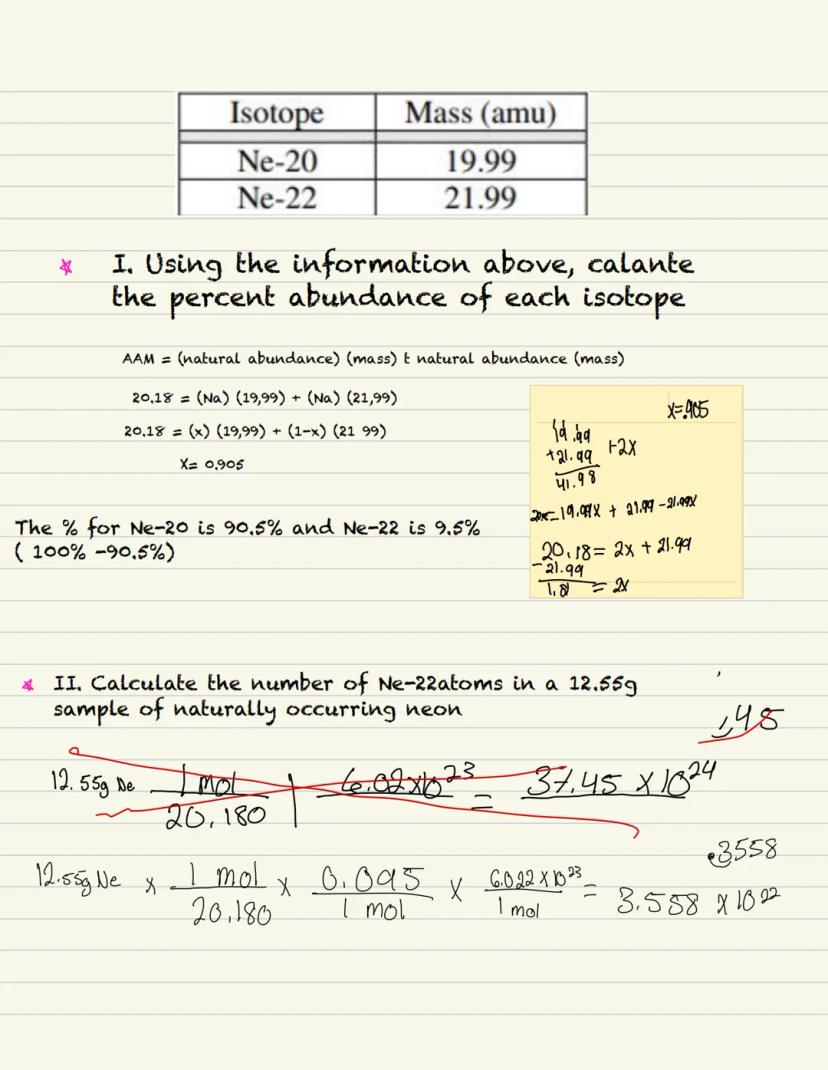 Isotope Mass (amu)
Ne-20 19.99
Ne-22 21.99
I. Using the information above, calante
the percent abundance of each isotope
AAM = (natural abundance) (mass) t natural abundance (mass)
20.18 = (Na) (19,99) + (Na) (21,99)
20.18 = (x) (19,99) + (1-x) (21 99)
X= 0.905
The % for Ne-20 is 90.5% and Ne-22 is 9.5%
( 100% -90.5%)
X=.905
19.99
+21.99 +2X
41.98
19.99X + 21.99 -21.99X
20.18= 2x + 21.99
-21.99
1.81 = 2X
II. Calculate the number of Ne-22atoms in a 12.55g
sample of naturally occurring neon
.45
12.55g Ne 1 mol 6.02x10^23 = 37.45 X 10^24
20.180
.3558
12.55g Ne x 1 mol x 0.095 x 6.022 X 10^23 = 3.558 X 10^22
20.180 1 mol 1 mol